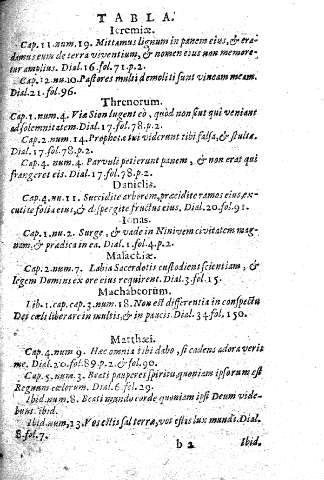 TABLA.
Ieremiæ.
Cap. 11. num. 19. Mittamus lignum in panem eius, & era-
damus eum de terra viventium, & nomen eius non memore-
tur amplius. Dial. 16. fol. 71. p. 2.
Cap. 12. nu. 10. Pastores multi demoliti sunt vineam meam.
Dial. 21. fol. 96.
Threnorum.
Cap. 1. num. 4. Viæ Sion lugent eò, quòd non sint qui veniant
ad solemnitatem. Dial. 17. fol. 78. p. 2.
Cap. 2. num. 14. Prophetæ tui viderunt tibi falsa, & stulta.
Dial. 17. fol. 78. p. 2.
Cap. 4. num. 4. Parvuli petierunt panem, & non erat qui
frangeret eis. Dial. 17. fol. 78. p. 2.
Danielis.
Cap. 4. nu. 11. Succidite arborem, præcidite ramos eius, ex-
cutite folia eius, & dispergite fructus eius. Dial. 20. fol. 91.
Ionas.
Cap. 1. nu. 2. Surge, & vade in Niniven civitatem mag-
nam, & prædica in ea. Dial. 1. fol. 4. p. 2.
Malachiæ.
Cap. 2. num. 7. Labia Sacerdotis custodient scientiam, &
legem Domini ex ore eius requirent. Dial. 3. fol. 15.
Machabeorum.
Lib. 1. cap. cap. 3. num. 18. Non est differentia in conspectu
Dei cœli liberare in multis, & in paucis. Dial. 34. fol. 150.
Matthæi.
Cap. 4. num 9. Hæc omnia tibi dabo, si cadens adora veris
me. Dial. 20. fol. 89. p. 2. & fol. 90.
Cap. 5. num. 3. Beati pauperes spiritu, quoniam ipsorum est
Regnum cœlorum. Dial. 6. fol. 29.
Ibid. num. 8. Beati mundo corde quoniam ipsi Deum vide-
bunt. ibid.
Ibid. num, 13. Vos estis sal terræ, vos estis lux mundi. Dial.
8. fol. 7.
b 2 Ibid.